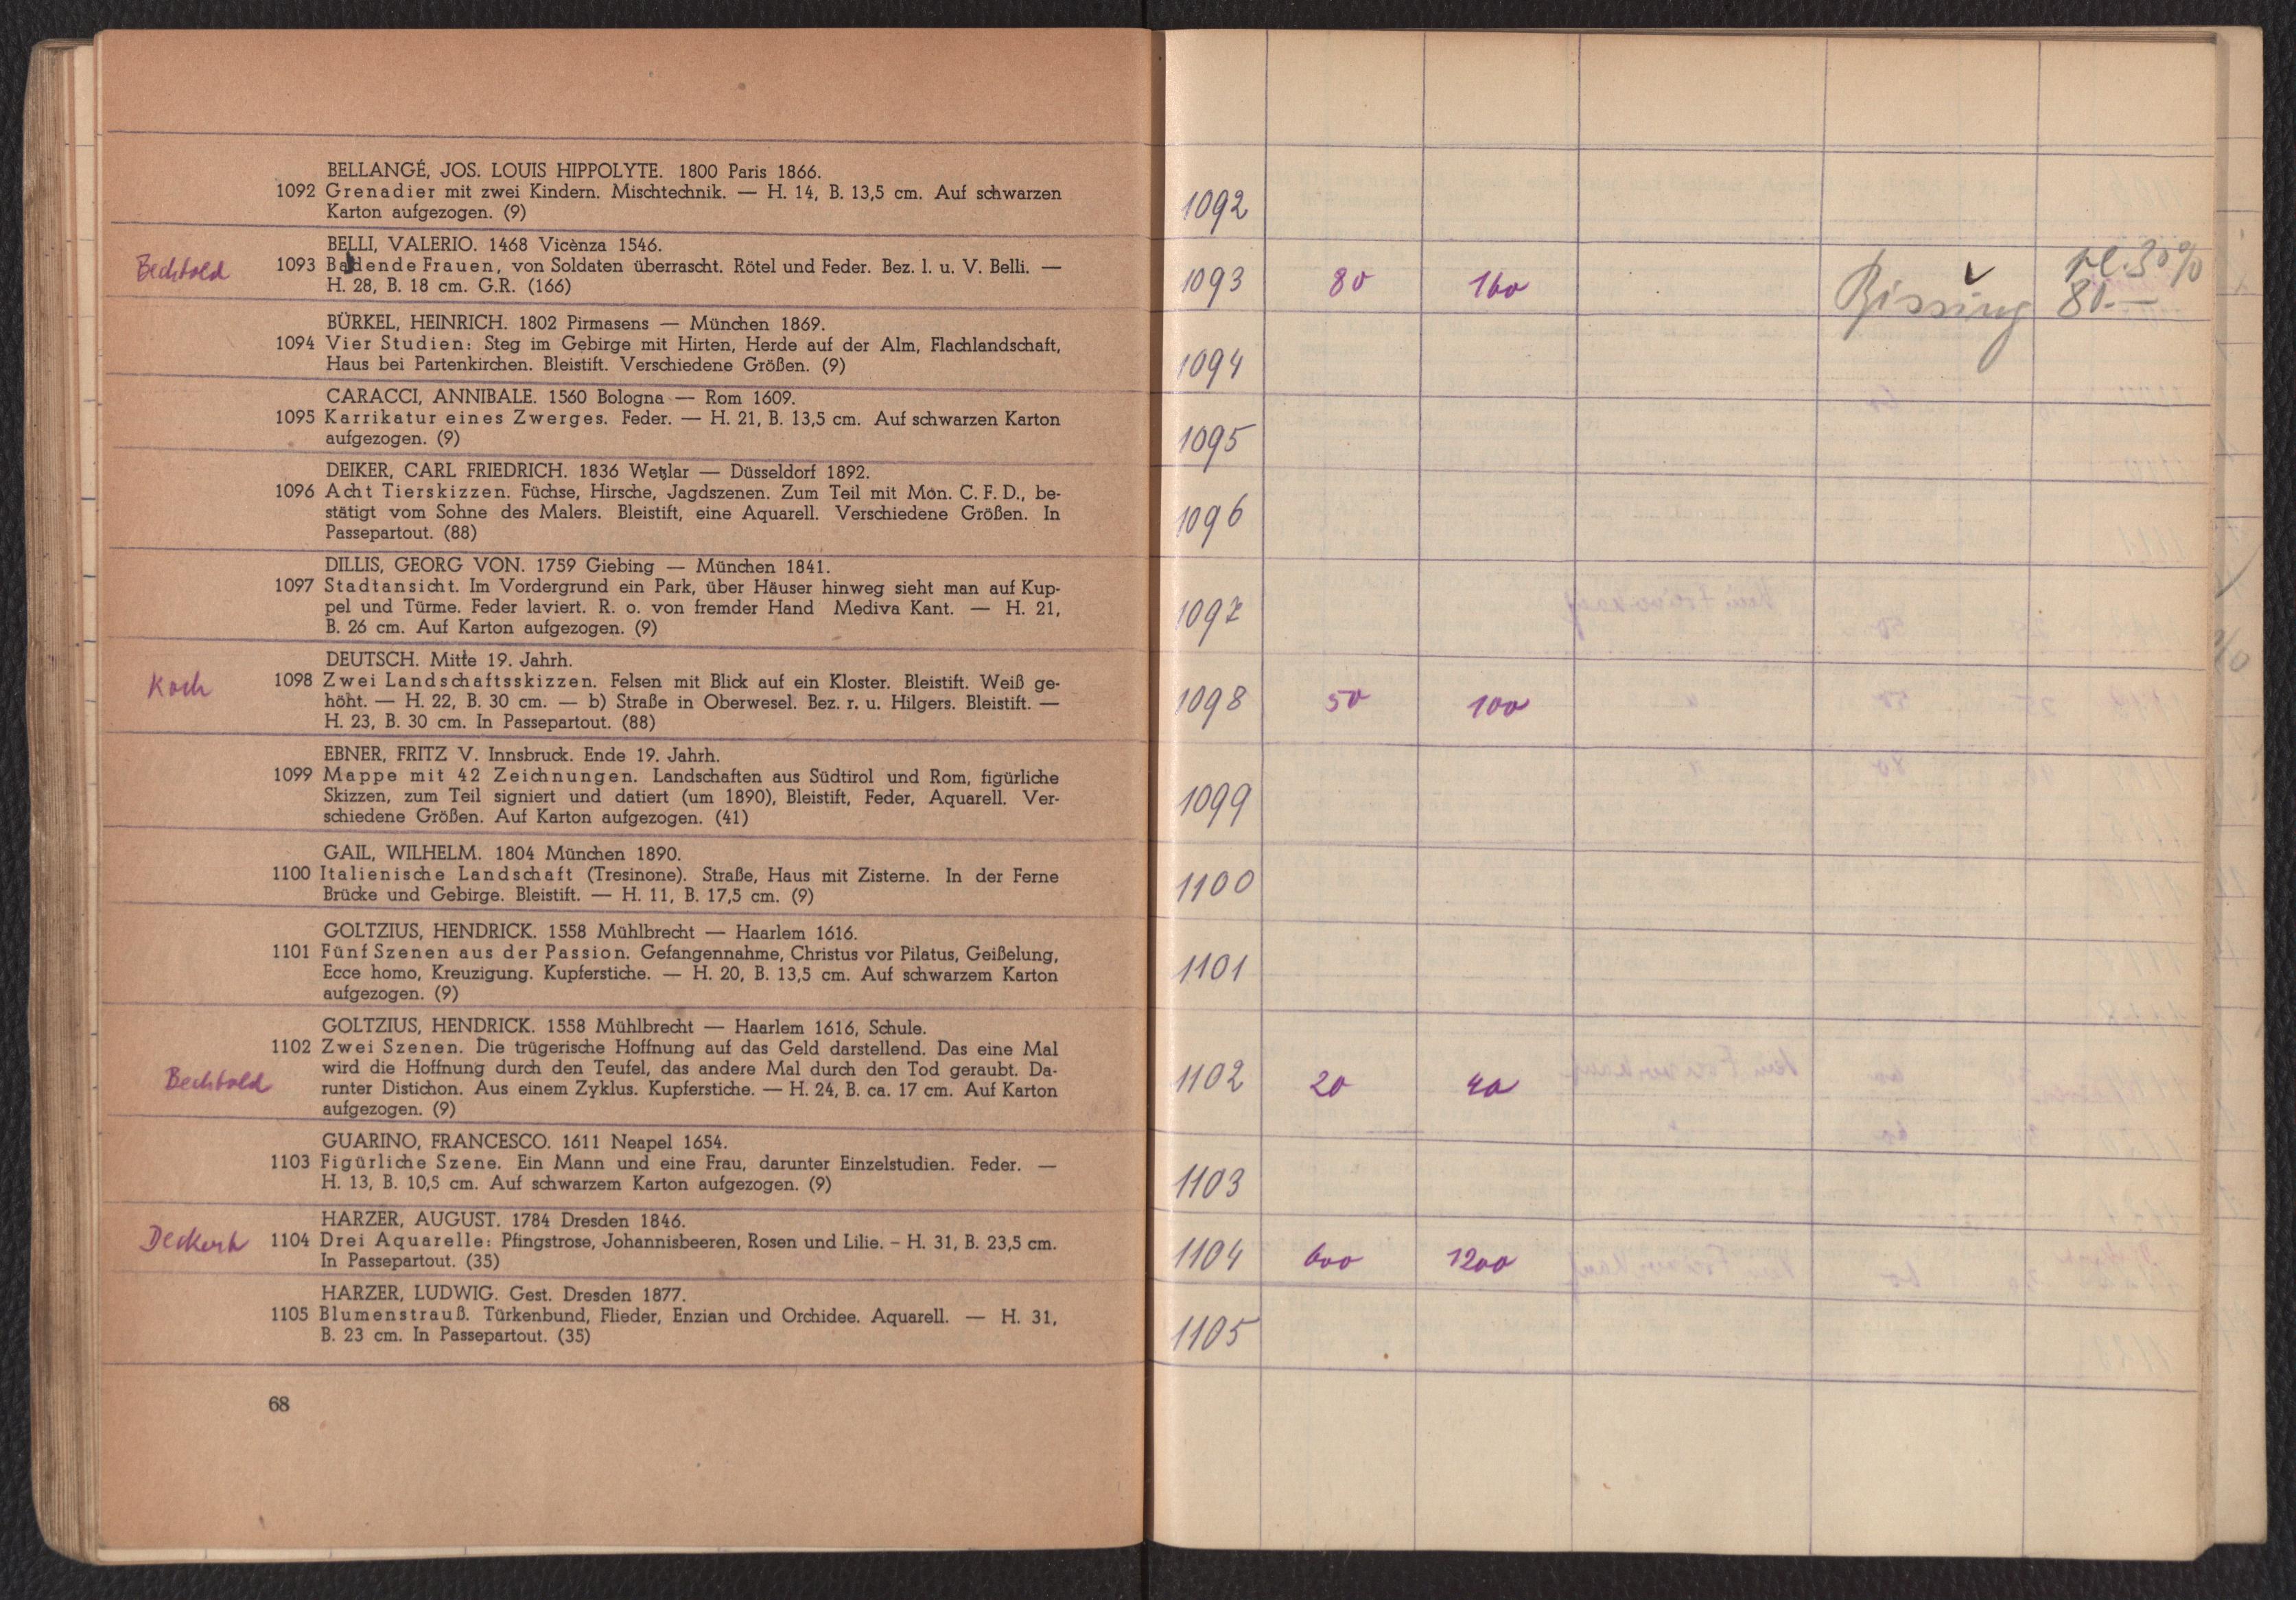 BELLANGÉ, JOS. LOUIS HIPPOLYTE. 1800 Paris 1866.
1092 Grenadier mit zwei Kindern. Mischtechnik. — H. 14, B. 13,5 cm. Auf schwarzen
Karton aufgezogen. (9)
BELLI, VALERIO. 1468 Vicènza 1546.
Bechtold
1093 Badende Frauen, von Soldaten überrascht. Rötel und Feder. Bez. l. u. V. Belli. —
H. 28, B. 18 cm. G.R. (166)
BÜRKEL, HEINRICH. 1802 Pirmasens — München 1869.
1094 Vier Studien: Steg im Gebirge mit Hirten, Herde auf der Alm, Flachlandschaft,
Haus bei Partenkirchen. Bleistift. Verschiedene Größen. (9)
CARACCI, ANNIBALE. 1560 Bologna — Rom 1609.
1095 Karrikatur eines Zwerges. Feder. — H. 21, B. 13,5 cm. Auf schwarzen Karton
aufgezogen. (9)
DEIKER, CARL FRIEDRICH. 1836 Wetzlar — Düsseldorf 1892.
1096 Acht Tierskizzen. Füchse, Hirsche, Jagdszenen. Zum Teil mit Mon. C. F. D., be-
stätigt vom Sohne des Malers. Bleistift, eine Aquarell. Verschiedene Größen. In
Passepartout. (88)
DILLIS, GEORG VON. 1759 Giebing — München 1841.
1097 Stadtansicht. Im Vordergrund ein Park, über Häuser hinweg sieht man auf Kup-
pel und Türme. Feder laviert. R. o. von fremder Hand Mediva Kant. — H. 21,
B. 26 cm. Auf Karton aufgezogen. (9)
DEUTSCH. Mitte 19. Jahrh.
Koch
1098 Zwei Landschaftsskizzen. Felsen mit Blick auf ein Kloster. Bleistift. Weiß ge-
höht. — H. 22, B. 30 cm. — b) Straße in Oberwesel. Bez. r. u. Hilgers. Bleistift. —
H. 23, B. 30 cm. In Passepartout. (88)
EBNER, FRITZ V. Innsbruck. Ende 19. Jahrh.
1099 Mappe mit 42 Zeichnungen. Landschaften aus Südtirol und Rom, figürliche
Skizzen, zum Teil signiert und datiert (um 1890), Bleistift, Feder, Aquarell. Ver-
schiedene Größen. Auf Karton aufgezogen. (41)
GAIL, WILHELM. 1804 München 1890.
1100 Italienische Landschaft (Tresinone). Straße, Haus mit Zisterne. In der Ferne
Brücke und Gebirge. Bleistift. — H. 11, B. 17,5 cm. (9)
GOLTZIUS, HENDRICK. 1558 Mühlbrecht — Haarlem 1616.
1101 Fünf Szenen aus der Passion. Gefangennahme, Christus vor Pilatus, Geißelung,
Ecce homo, Kreuzigung. Kupferstiche. — H. 20, B. 13,5 cm. Auf schwarzem Karton
aufgezogen. (9)
GOLTZIUS, HENDRICK. 1558 Mühlbrecht — Haarlem 1616, Schule.
1102 Zwei Szenen. Die trügerische Hoffnung auf das Geld darstellend. Das eine Mal
wird die Hoffnung durch den Teufel, das andere Mal durch den Tod geraubt. Da-
Bechtold
runter Distichon. Aus einem Zyklus. Kupferstiche. — H. 24, B. ca. 17 cm. Auf Karton
aufgezogen. (9)
GUARINO, FRANCESCO. 1611 Neapel 1654.
1103 Figürliche Szene. Ein Mann und eine Frau, darunter Einzelstudien. Feder. —
H. 13, B. 10,5 cm. Auf schwarzem Karton aufgezogen. (9)
HARZER, AUGUST. 1784 Dresden 1846.
Deckert
1104 Drei Aquarelle: Pfingstrose, Johannisbeeren, Rosen und Lilie. – H. 31, B. 23,5 cm.
In Passepartout. (35)
HARZER, LUDWIG. Gest. Dresden 1877.
1105 Blumenstrauß. Türkenbund, Flieder, Enzian und Orchidee. Aquarell. — H. 31,
B. 23 cm. In Passepartout. (35)
68
1092
1093 80 160 Bissing 30% 80.—
1094
1095
1096
1097
1098 50 100
1099
1100
1101
1102 20 40
1103
1104 600 1200
1105